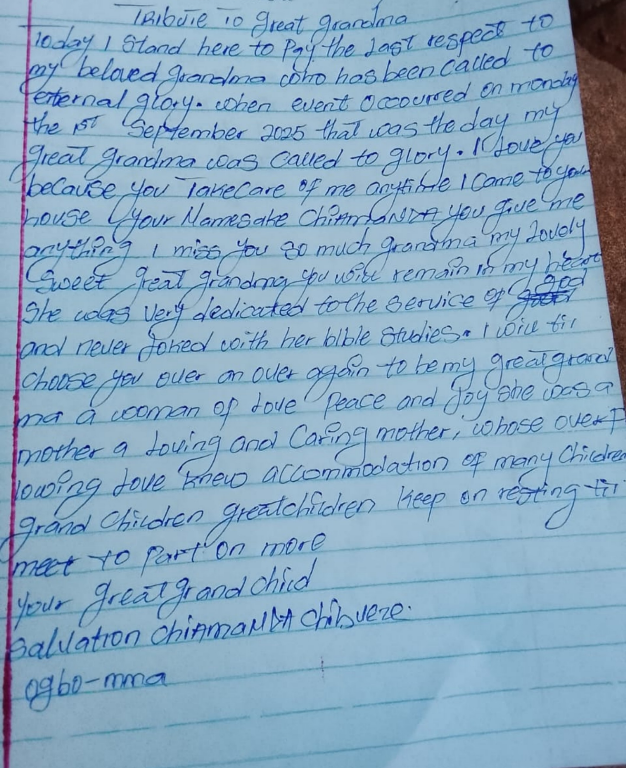 Tribute To great grandma
Today I Stand here to Pay the Last respect to
my beloved grandma who has been called to
eternal glory. when event occourred on monday
the 1st September 2025 that was the day my
great grandma was called to glory. I Love you
because you Takecare of me anytime I Came to your
house your Namesake ChiAmaNDA you give me
anything I miss you so much grandma my Lovely
Sweet great grandma you will remain in my heart
She was very dedicated to the service of God
and never Joked with her bible studies. I will
Choose you over an over again to be my great grand
ma a woman of Love Peace and Joy she was a
mother a Loving and Caring mother, whose overf
lowing Love knew accommodation of many Children
grand Children greatchildren keep on resting till
meet to Part on more
your great grand child
Salvation ChiAmaNDA Chibueze.
Ogbo-mma